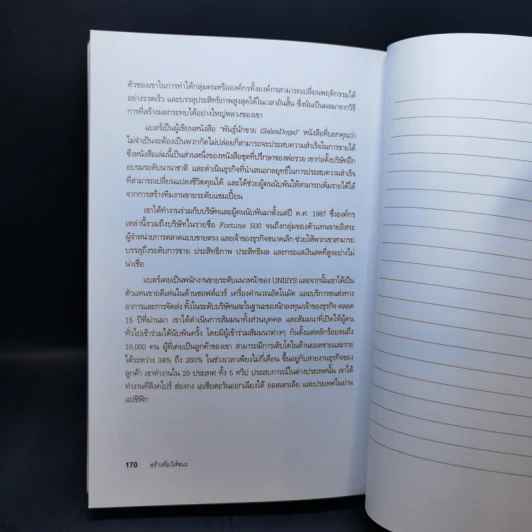 ตัวของเขาในการทำให้กลุ่มคนหรือองค์กรทั้งองค์กรสามารถเปลี่ยนพฤติกรรมได้
อย่างรวดเร็ว และบรรลุประสิทธิภาพสูงสุดได้ในเวลาอันสั้น ซึ่งนั่นเป็นผลมาจากวิธี
การที่สร้างผลกระทบได้อย่างใหญ่หลวงของเขา
แบลร์เป็นผู้เขียนหนังสือ "พันธุ์นักขาย (SalesDogs)" หนังสือที่บอกคุณว่า
ไม่จำเป็นจะต้องเป็นพวกกัดไม่ปล่อยก็สามารถจะประสบความสำเร็จในการขายได้
ซึ่งหนังสือเล่มนี้เป็นส่วนหนึ่งของหนังสือชุดที่ปรึกษาของพ่อรวย เขาก่อตั้งบริษัทฝึก
อบรมระดับนานาชาติ และดำเนินธุรกิจที่นำเสนอกลยุทธ์ในการประสบความสำเร็จ
ที่สามารถเปลี่ยนแปลงชีวิตคุณได้ และได้ช่วยผู้คนนับพันให้สามารถเพิ่มรายได้ได้
จากการสร้างทีมงานขายระดับแชมเปี้ยน
เขาได้ทำงานร่วมกับบริษัทและผู้คนนับพันมาตั้งแต่ปี ค.ศ. 1987 ซึ่งองค์กร
เหล่านี้รวมถึงบริษัทในรายชื่อ Fortune 500 จนถึงกลุ่มของตัวแทนขายอิสระ
ผู้จำนายการตลาดแบบขายตรง และเจ้าของธุรกิจขนาดเล็ก ช่วยให้พวกเขาสามารถ
บรรลุถึงระดับการขาย ประสิทธิภาพ ประสิทธิผล และกระแสเงินสดที่สูงอย่างไม่
น่าเชื่อ
แบลร์เคยเป็นพนักงานขายระดับแนวหน้าของ UNISYS และจากนั้นเขาได้เป็น
ตัวแทนขายดีเด่นในด้านซอฟต์แวร์ เครื่องคำนวณอัตโนมัติ และบริการขนส่งทาง
อากาศและการจัดส่ง ทั้งในระดับบริษัทและในฐานะของนักลงทุน/เจ้าของธุรกิจ ตลอด
15 ปีที่ผ่านมา เขาได้ดำเนินการสัมมนาทั้งส่วนบุคคล และสัมมนาที่เปิดให้ผู้คน
ทั่วไปเข้าร่วมได้นับพันครั้ง โดยมีผู้เข้าร่วมสัมมนาต่างๆ กันตั้งแต่หลักร้อยจนถึง
10,000 คน ผู้ที่เคยเป็นลูกค้าของเขา สามารถมีการเติบโตในด้านยอดขายและราย
ได้ระหว่าง 34% ถึง 260% ในช่วงเวลาเพียงไม่กี่เดือน ขึ้นอยู่กับสายงานธุรกิจของ
ลูกค้า เขาทำงานใน 20 ประเทศ ทั้ง 5 ทวีป ประสบการณ์ในต่างประเทศนั้น เขาได้
ทำงานที่สิงคโปร์ ฮ่องกง เอเชียตะวันออกเฉียงใต้ ออสเตรเลีย และประเทศในย่าน
แปซิฟิก
170 สร้างทีมให้ชนะ